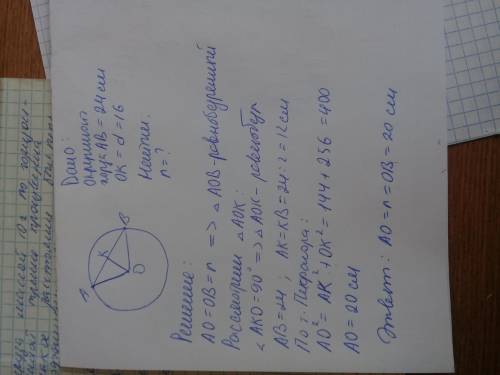 Дано:
окружность
хорда AB = 24 см
OK = d = 16
Найти:
r = ?
A
K
B
O
Решение:
AO = OB = r => △AOB - равнобедренный
Рассмотрим △AOK:
∠AKO = 90° => △AOK -
AB = 24 ; AK = KB = 24 : 2 = 12 см
По т. Пифагора:
AO² = AK² + OK² = 144 + 256 = 400
AO = 20 см
Ответ: AO = r = OB = 20 см
массой 10 г по горизон-